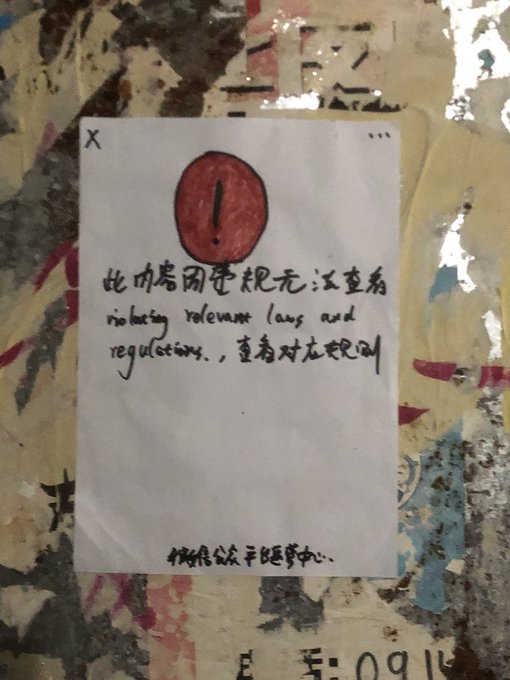 X ...
!
此内容因违规无法查看
violating relevant laws and
regulations., 查看对应规则
微信公众平台运营中心.
E 5: 091